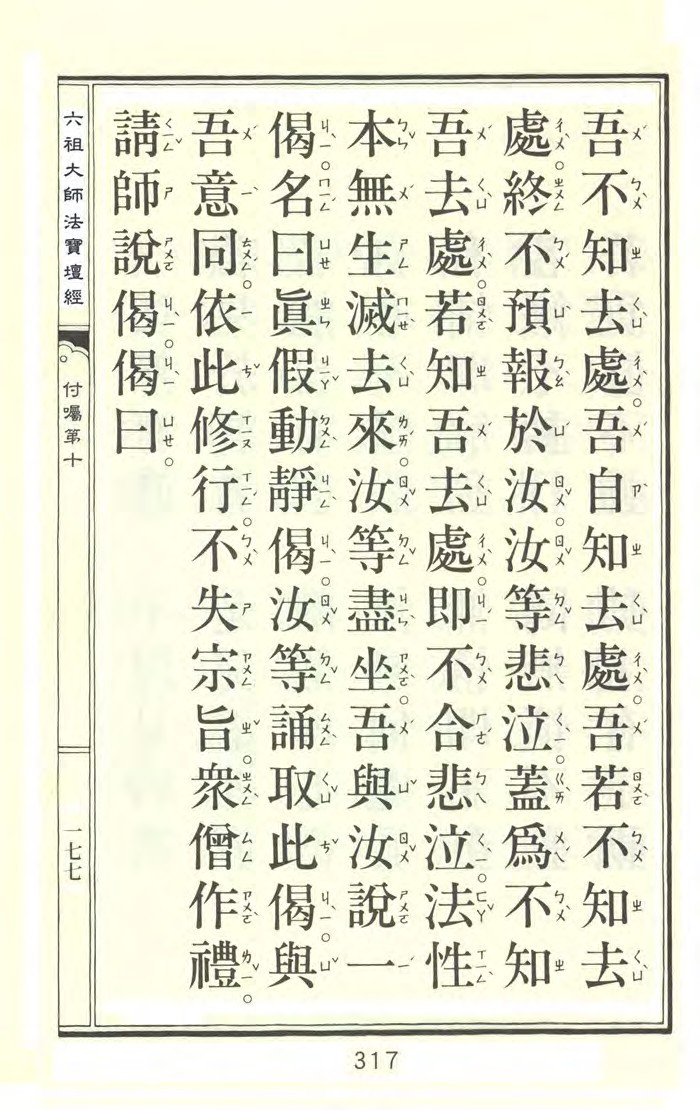 吾不知去處。吾自知去處。吾若不知去
處。終不預報於汝。汝等悲泣。蓋為不知
吾去處。若知吾去處。即不合悲泣。法性
本無生滅去來。汝等盡坐。吾與汝說一
偈。名曰眞假動靜偈。汝等誦取此偈。與
吾意同。依此修行。不失宗旨。衆僧作禮。
請師說偈。偈曰。
六祖大師法寶壇經
付囑第十
一七七
317